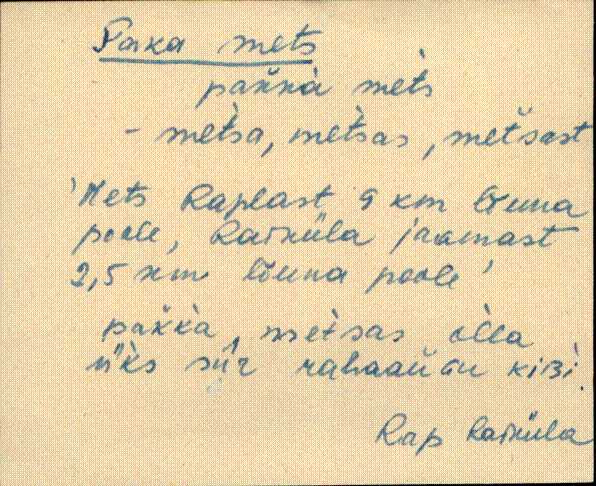 Paka mets
pakkà mèts
- mètsa, mètsas, mètsast
'Mets Raplast 9 km lõuna
poole, Raiküla jaamast
2,5 km lõuna poole'
pakkà, mètsas òlla
üks sūr rahaaùgu kiBì.
Rap Raiküla